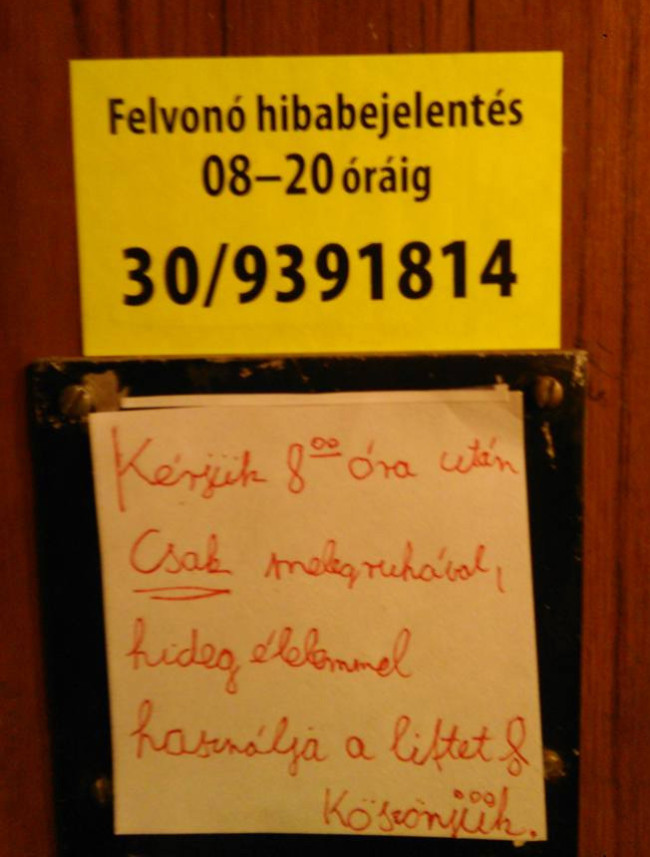 Felvonó hibabejelentés
08–20 óráig
30/9391814
Kérjük 8⁰⁰ óra után
Csak melegruhával,
hideg élelemmel
használja a liftet !
Köszönjük.